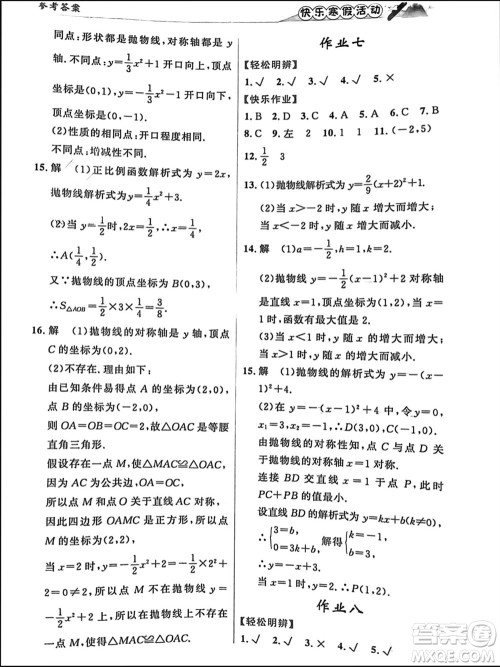 参考答案
快乐寒假活动
同点:形状都是抛物线,对称轴都是y
轴.不同点:y=\frac{1}{2}x²+1开口向上,顶
点坐标是(0,1);y=-\frac{1}{2}x²-1开口向下,
顶点坐标是(0,-1).
(2)性质的相同点:开口程度相同.
不同点:增减性不同.
15.解 (1)正比例函数解析式为y=2x,
抛物线解析式为y=\frac{1}{4}x²+3.
(2)当x=\frac{1}{4}时,y=2x=2×\frac{1}{4}=\frac{1}{2},
∴A(\frac{1}{4},\frac{1}{2}).
又∵抛物线的顶点坐标为B(0,3),
∴S△AOB=\frac{1}{2}×3×\frac{1}{4}=\frac{3}{8}.
16.解 (1)抛物线的对称轴是y轴,顶点
C的坐标为(0,2).
(2)不存在.理由如下:
由已知条件易得点A坐标为(2,0),
点B的坐标为(-2,0),
则OA=OB=OC=2,故△ABC是等腰
直角三角形.
假设存在一点M,使△MAC≌△OAC,
因为AC为公共边,OA=OC,
所以点M和点O关于直线AC对称,
所以四边形OAMC是正方形,
所以点M的坐标为(2,2).
当x=2时,y=-\frac{1}{2}x²+2=-\frac{1}{2}×4+2
=0≠2,即点M不在抛物线y=
-\frac{1}{2}x²+2上,所以在抛物线上不存在
一点M,使△MAC≌△OAC.
作业七
【轻松明辨】
1.√ 2.√ 3.√ 4.√ 5.×
【快乐作业】
1.B 2.D 3.B 4.D 5.B 6.C 7.B
8.C 9.左 2 10.1 1 11.(-2,5)
12.\frac{1}{2} 3
13.(1)抛物线解析式为y=\frac{2}{9}(x+2)².
(2)当x>-2时,y随x的增大而增大;
当x<-2时,y随x的增大而减小.
14.解 (1)a=-\frac{1}{2},h=-1,k=2.
(2)抛物线y=-\frac{1}{2}(x-1)²+2的对称轴
是x=1,顶点坐标为(1,2),所以当x=1
时,函数有最大值是2.
(3)当x<1时,y随x的增大而增大,
当x>1时,y随x的增大而减小.
15.解 (1)抛物线的解析式为y=-(x+
1)²+4.
(2)令x=0,y=3,∴C(0,3).令y=0,
x₁=-3,x₂=1.∴D(1,0).
由抛物线的对称性知,点C与点D关于
直线x=-1对称,点B与直线x=-1的
交点就是所求点P.
设直线BD的解析式为y=kx+b,
∴{3=b, 0=3k+b, 解得{k=-1, b=3.
∴y=-x+3.
当x=-1时,y=4.∴P(-1,4).
作业八
【轻松明辨】
1.√ 2.√ 3.× 4.√ 5.√